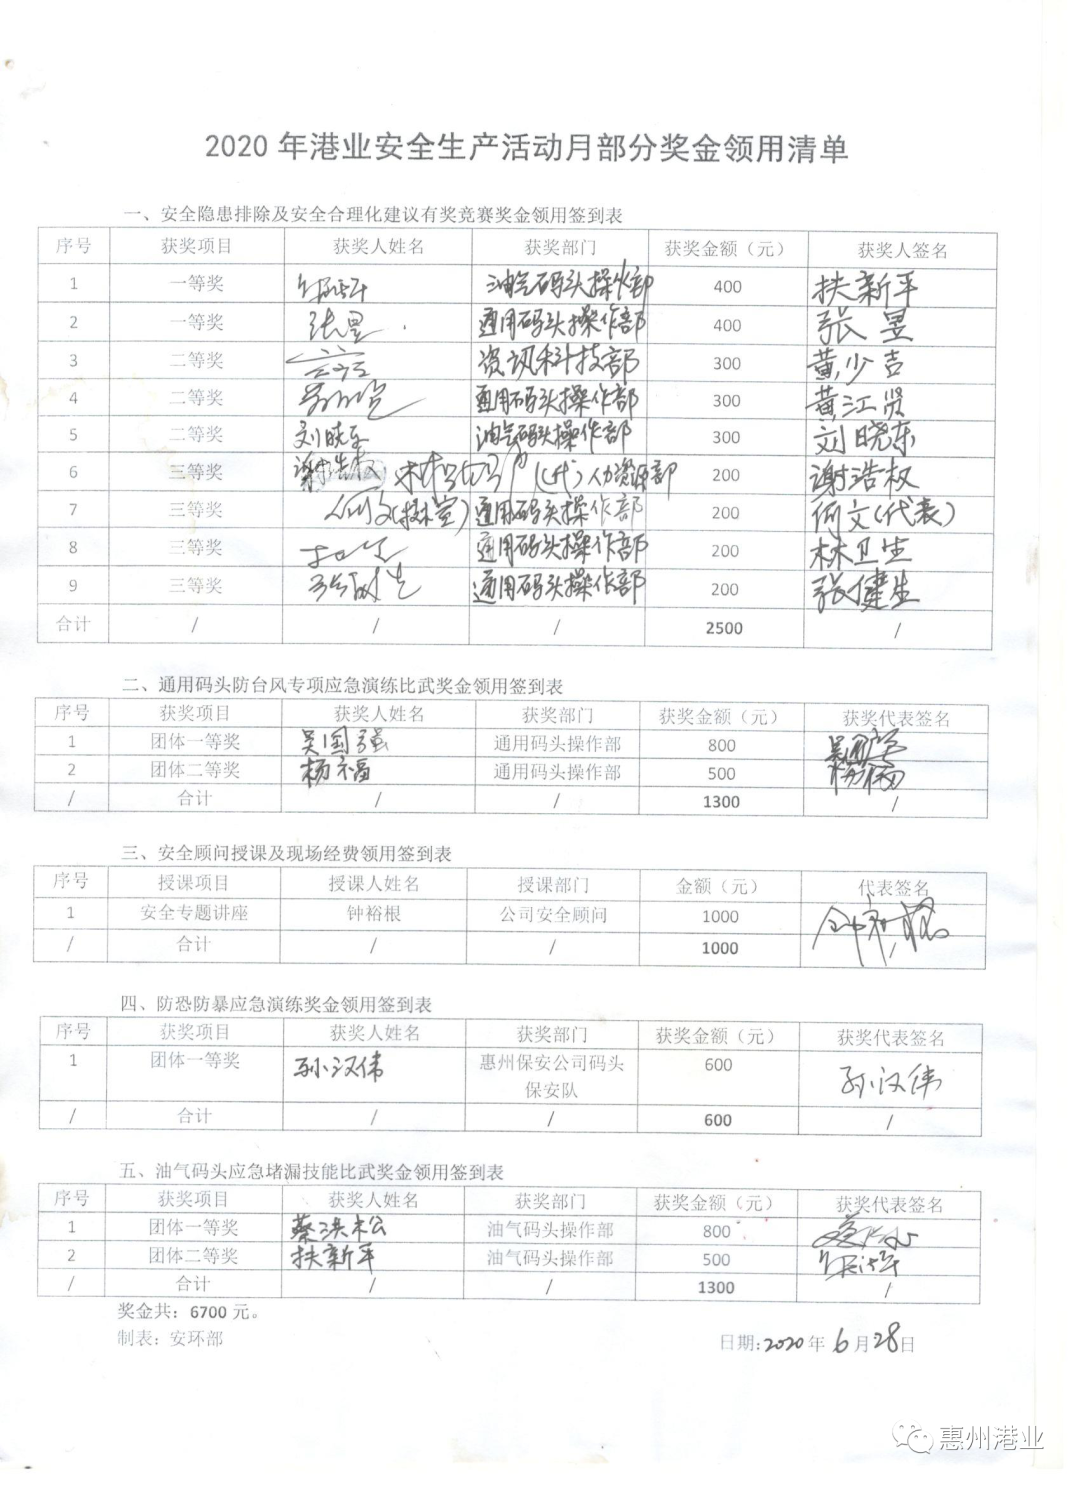 2020 年港业安全生产活动月部分奖金领用清单
一、安全隐患排除及安全合理化建议有奖竞赛奖金领用签到表
序号 获奖项目 获奖人姓名 获奖部门 获奖金额（元） 获奖人签名
1 一等奖 油气码头操作部 400 扶新平
2 一等奖 张昱 通用码头操作部 400 张昱
3 二等奖 资讯科技部 300 黄少吉
4 二等奖 通用码头操作部 300 黄江贤
5 二等奖 刘晓东 油气码头操作部 300 刘晓东
6 三等奖 谢浩权 (代) 人力资源部 200 谢浩权
7 三等奖 通用码头操作部 200 何文(代表)
8 三等奖 通用码头操作部 200 林卫生
9 三等奖 通用码头操作部 200 张健生
合计 / / / 2500 /
二、通用码头防台风专项应急演练比武奖金领用签到表
序号 获奖项目 获奖人姓名 获奖部门 获奖金额（元） 获奖代表签名
1 团体一等奖 吴国强 通用码头操作部 800
2 团体二等奖 杨福 通用码头操作部 500
/ 合计 / / 1300 /
三、安全顾问授课及现场经费领用签到表
序号 授课项目 授课人姓名 授课部门 金额（元） 代表签名
1 安全专题讲座 钟裕根 公司安全顾问 1000
/ 合计 / / 1000 /
四、防恐防暴应急演练奖金领用签到表
序号 获奖项目 获奖人姓名 获奖部门 获奖金额（元） 获奖代表签名
1 团体一等奖 孙汉伟 惠州保安公司码头 600 孙汉伟
保安队
/ 合计 / / 600 /
五、油气码头应急堵漏技能比武奖金领用签到表
序号 获奖项目 获奖人姓名 获奖部门 获奖金额（元） 获奖代表签名
1 团体一等奖 蔡洪松 油气码头操作部 800
2 团体二等奖 扶新平 油气码头操作部 500
/ 合计 / / 1300 /
奖金共：6700 元。
制表：安环部 日期:2020年 6月28日
惠州港业